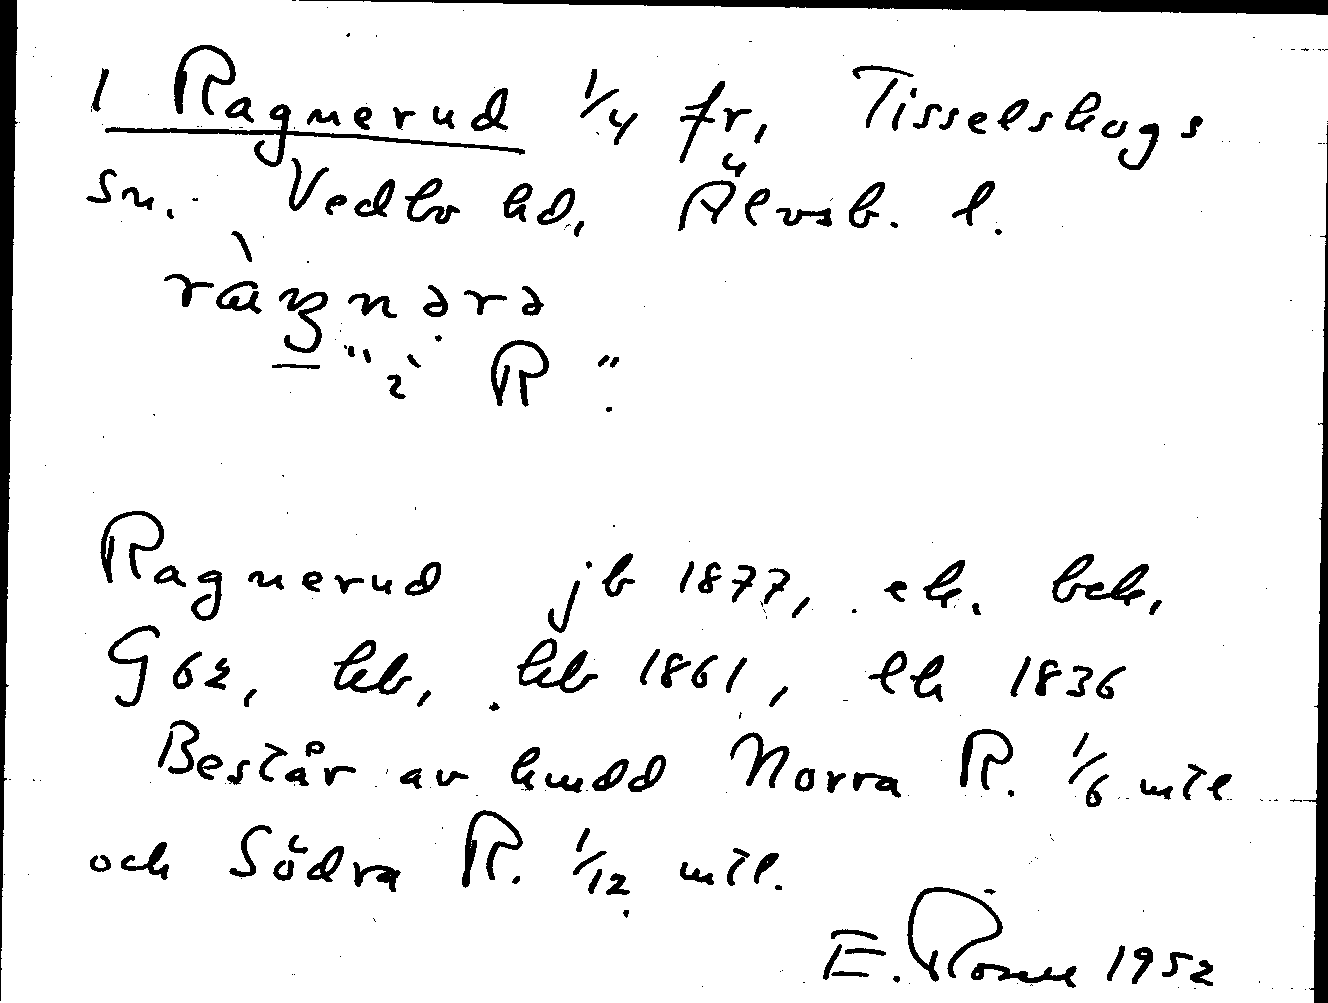 1 Ragnerud 1/4 fr, Tisselskogs
sn. Vedbo hd, Älvsb. l.
ràgnərə
"i R".
Ragnerud jb 1877, ek. bek,
G62, hb, kb 1861, lh 1836
Består av hmdd Norra R. 1/6 mtl
och Södra R. 1/12 mtl.
E. 1952